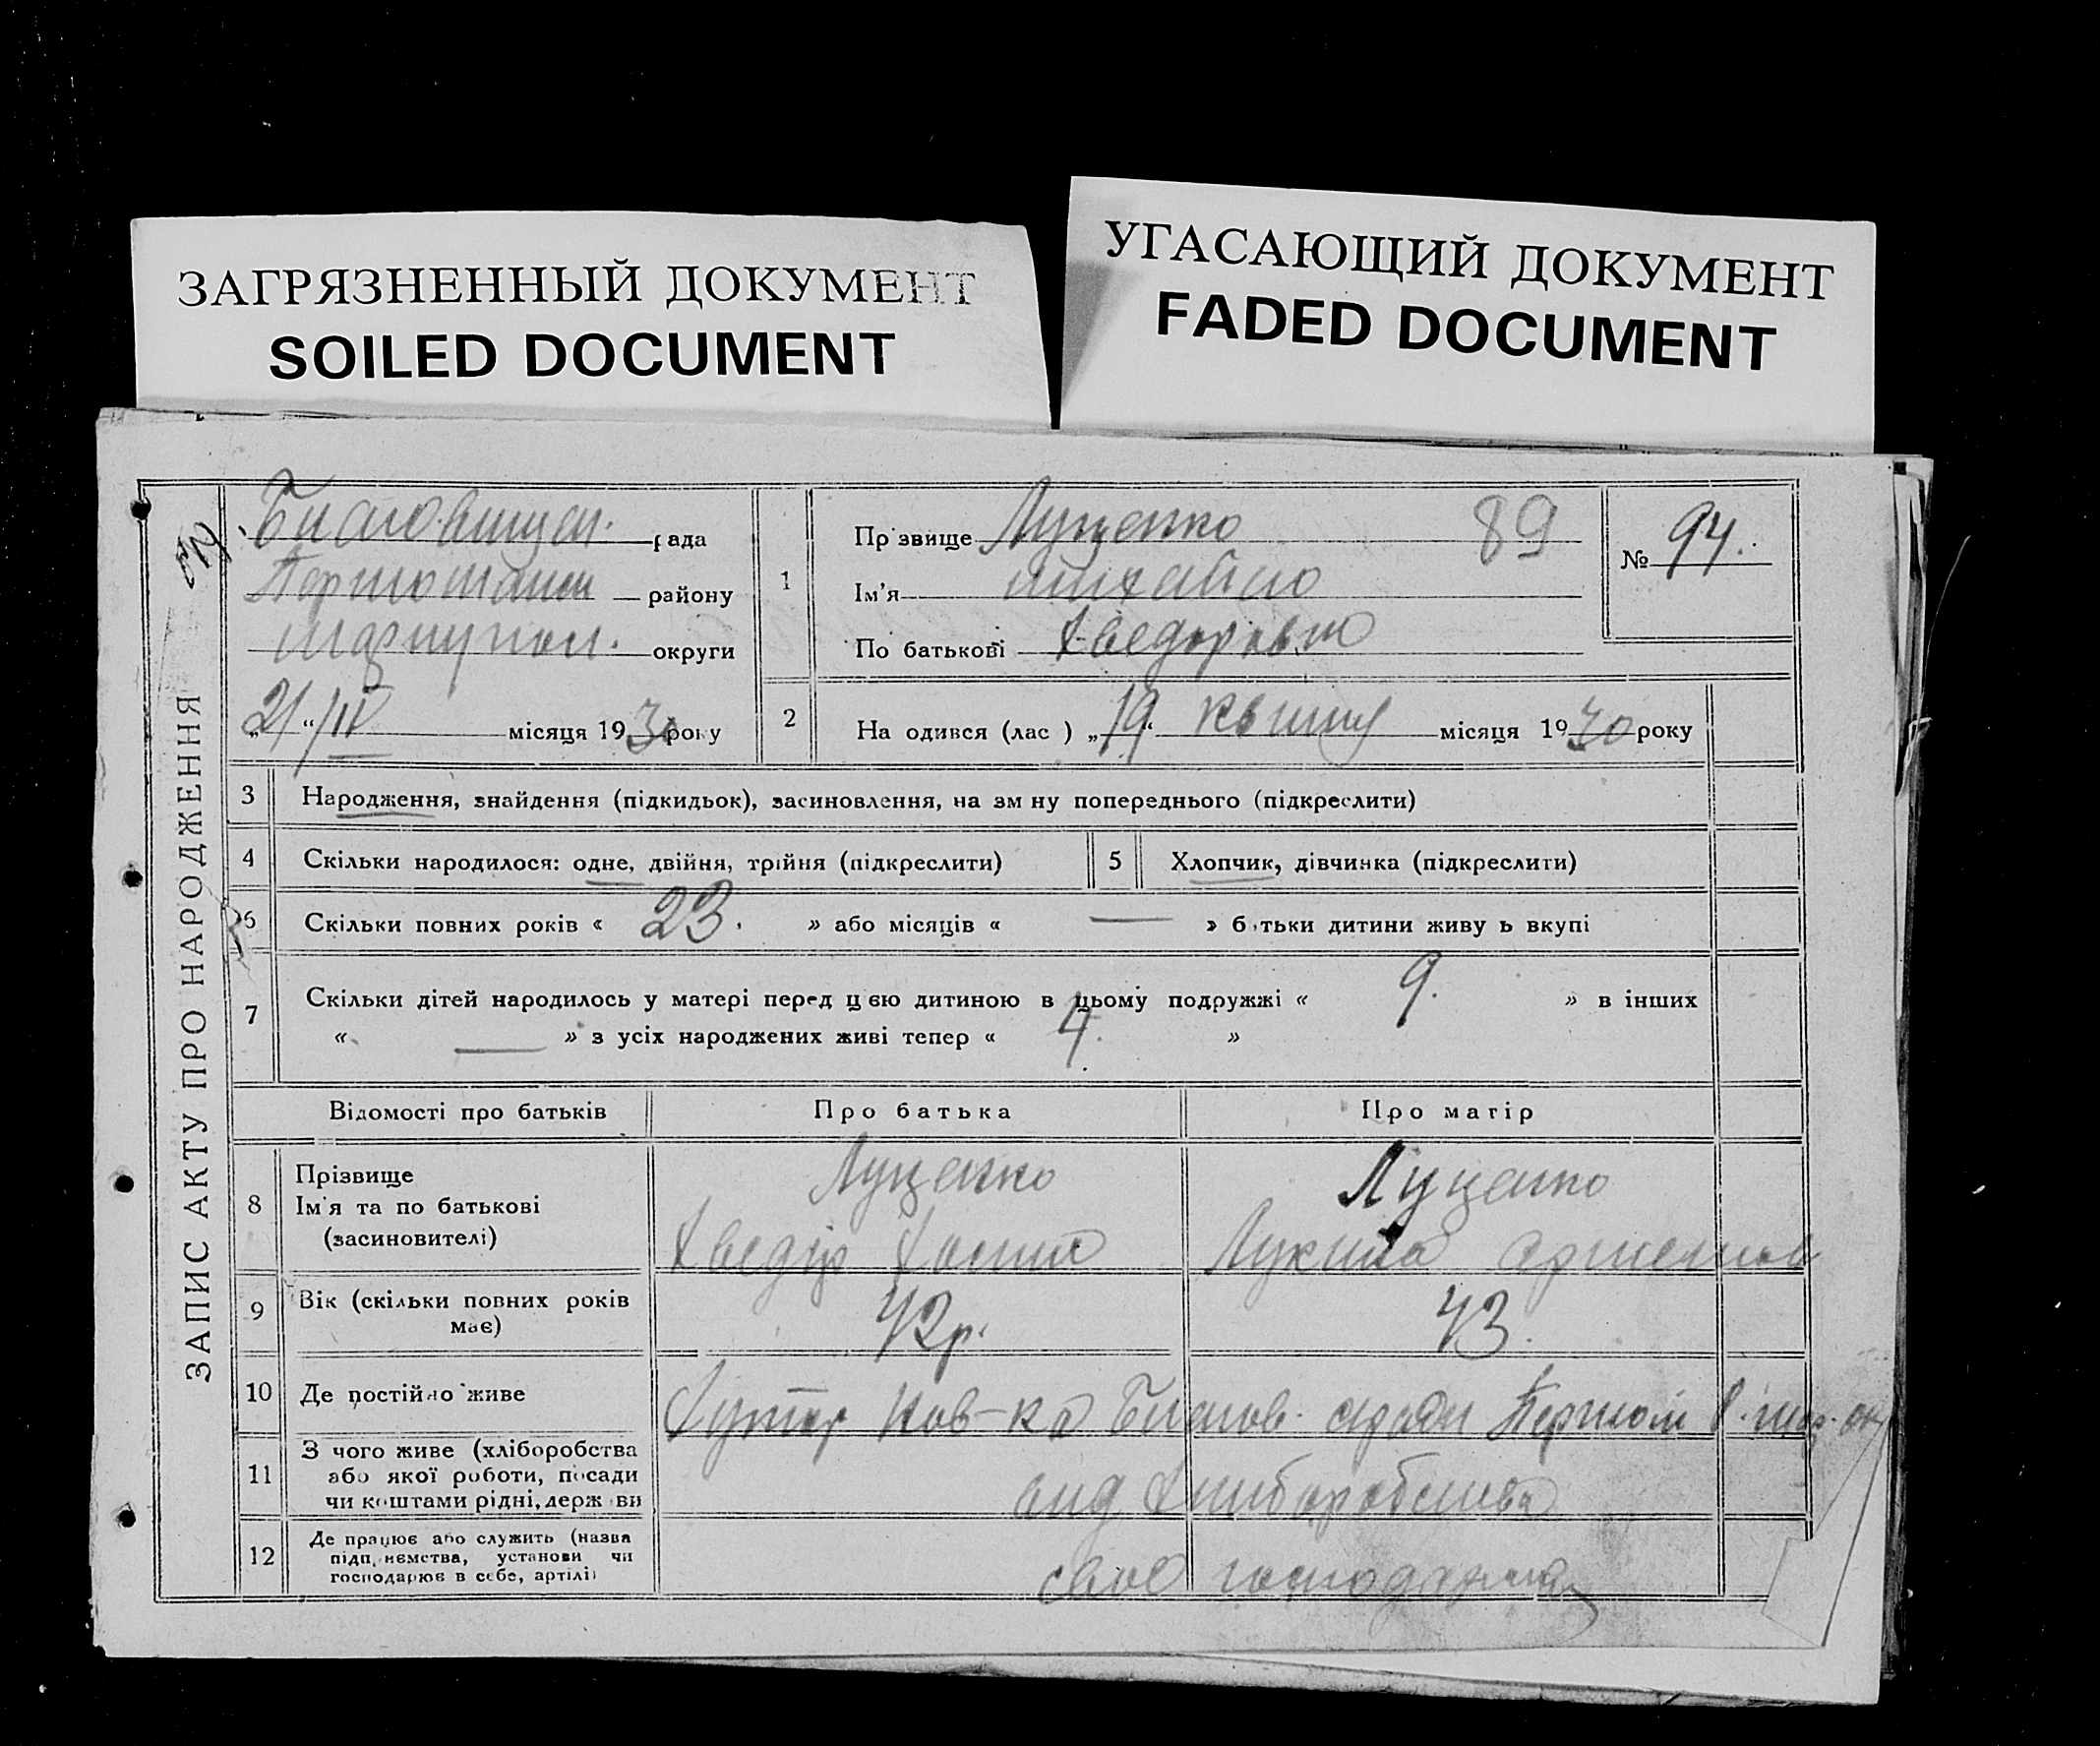 ЗАГРЯЗНЕННЫЙ ДОКУМЕНТ
SOILED DOCUMENT
УГАСАЮЩИЙ ДОКУМЕНТ
FADED DOCUMENT
ЗАПИС АКТУ ПРО НАРОДЖЕННЯ
рада
району
Маріупол. округи
„21/“ IV місяця 1930 року
1
Пр звище Луценко 89
Ім'я Михайло
По батькові Хведоровіч
№ 94.
2 На одився (лас ) „19“ квітня місяця 1930 року
3 Народження, знайдення (підкидьок), засиновлення, на зм ну попереднього (підкреслити)
4 Скільки народилося: одне, двійня, трійня (підкреслити)
5 Хлопчик, дівчинка (підкреслити)
6 Скільки повних років « 23. » або місяців « — » б тьки дитини живу ь вкупі
7 Скільки дітей народилось у матері перед цією дитиною в цьому подружжі « 9. » в інших
« — » з усіх народжених живі тепер « 4. »
Відомості про батьків Про батька Про матір
8 Прізвище
Ім'я та по батькові
(засиновителі)
Луценко
Хведір
Луценко
9 Вік (скільки повних років має)
42р.
43.
10 Де постійно живе
Хутор Нов-ка
11 З чого живе (хліборобства
або якої роботи, посади
чи коштами рідні, держ ви
від хліборобства
12 Де працює або служить (назва
підп иємства, установи чи
господарює в себе, артілі)
своє господарство